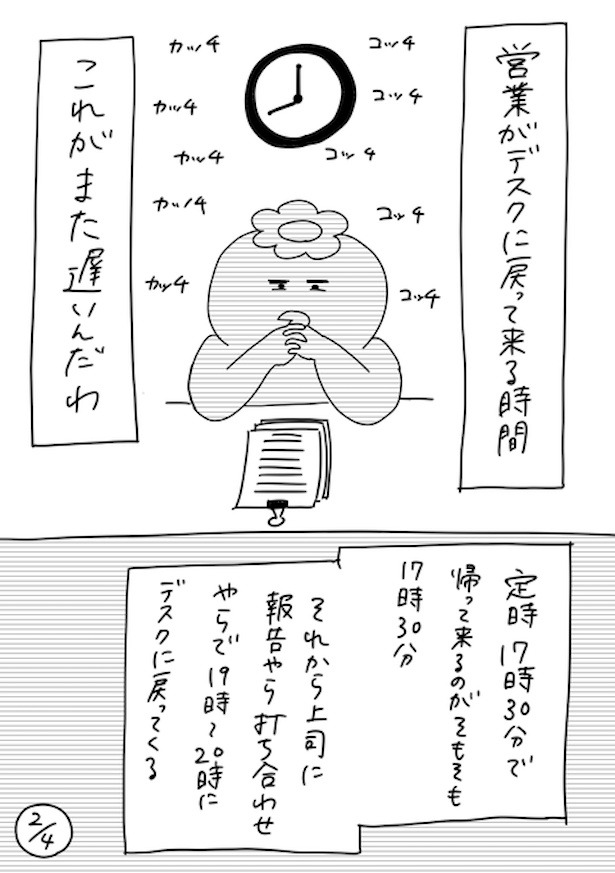 営業がデスクに戻って来る時間
コッチ
コッチ
コッチ
コッチ
コッチ
カッチ
カッチ
カッチ
カッチ
カッチ
これがまた遅いんだわ
定時 17時30分で
帰って来るのがそもそも
17時30分
それから上司に
報告やら打ち合わせ
やらで19時~20時に
デスクに戻ってくる
2/4